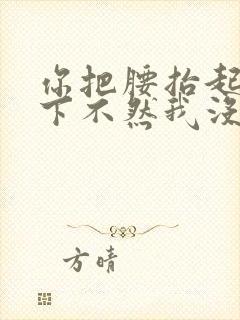 你把腰抬起
下不然我没
方晴